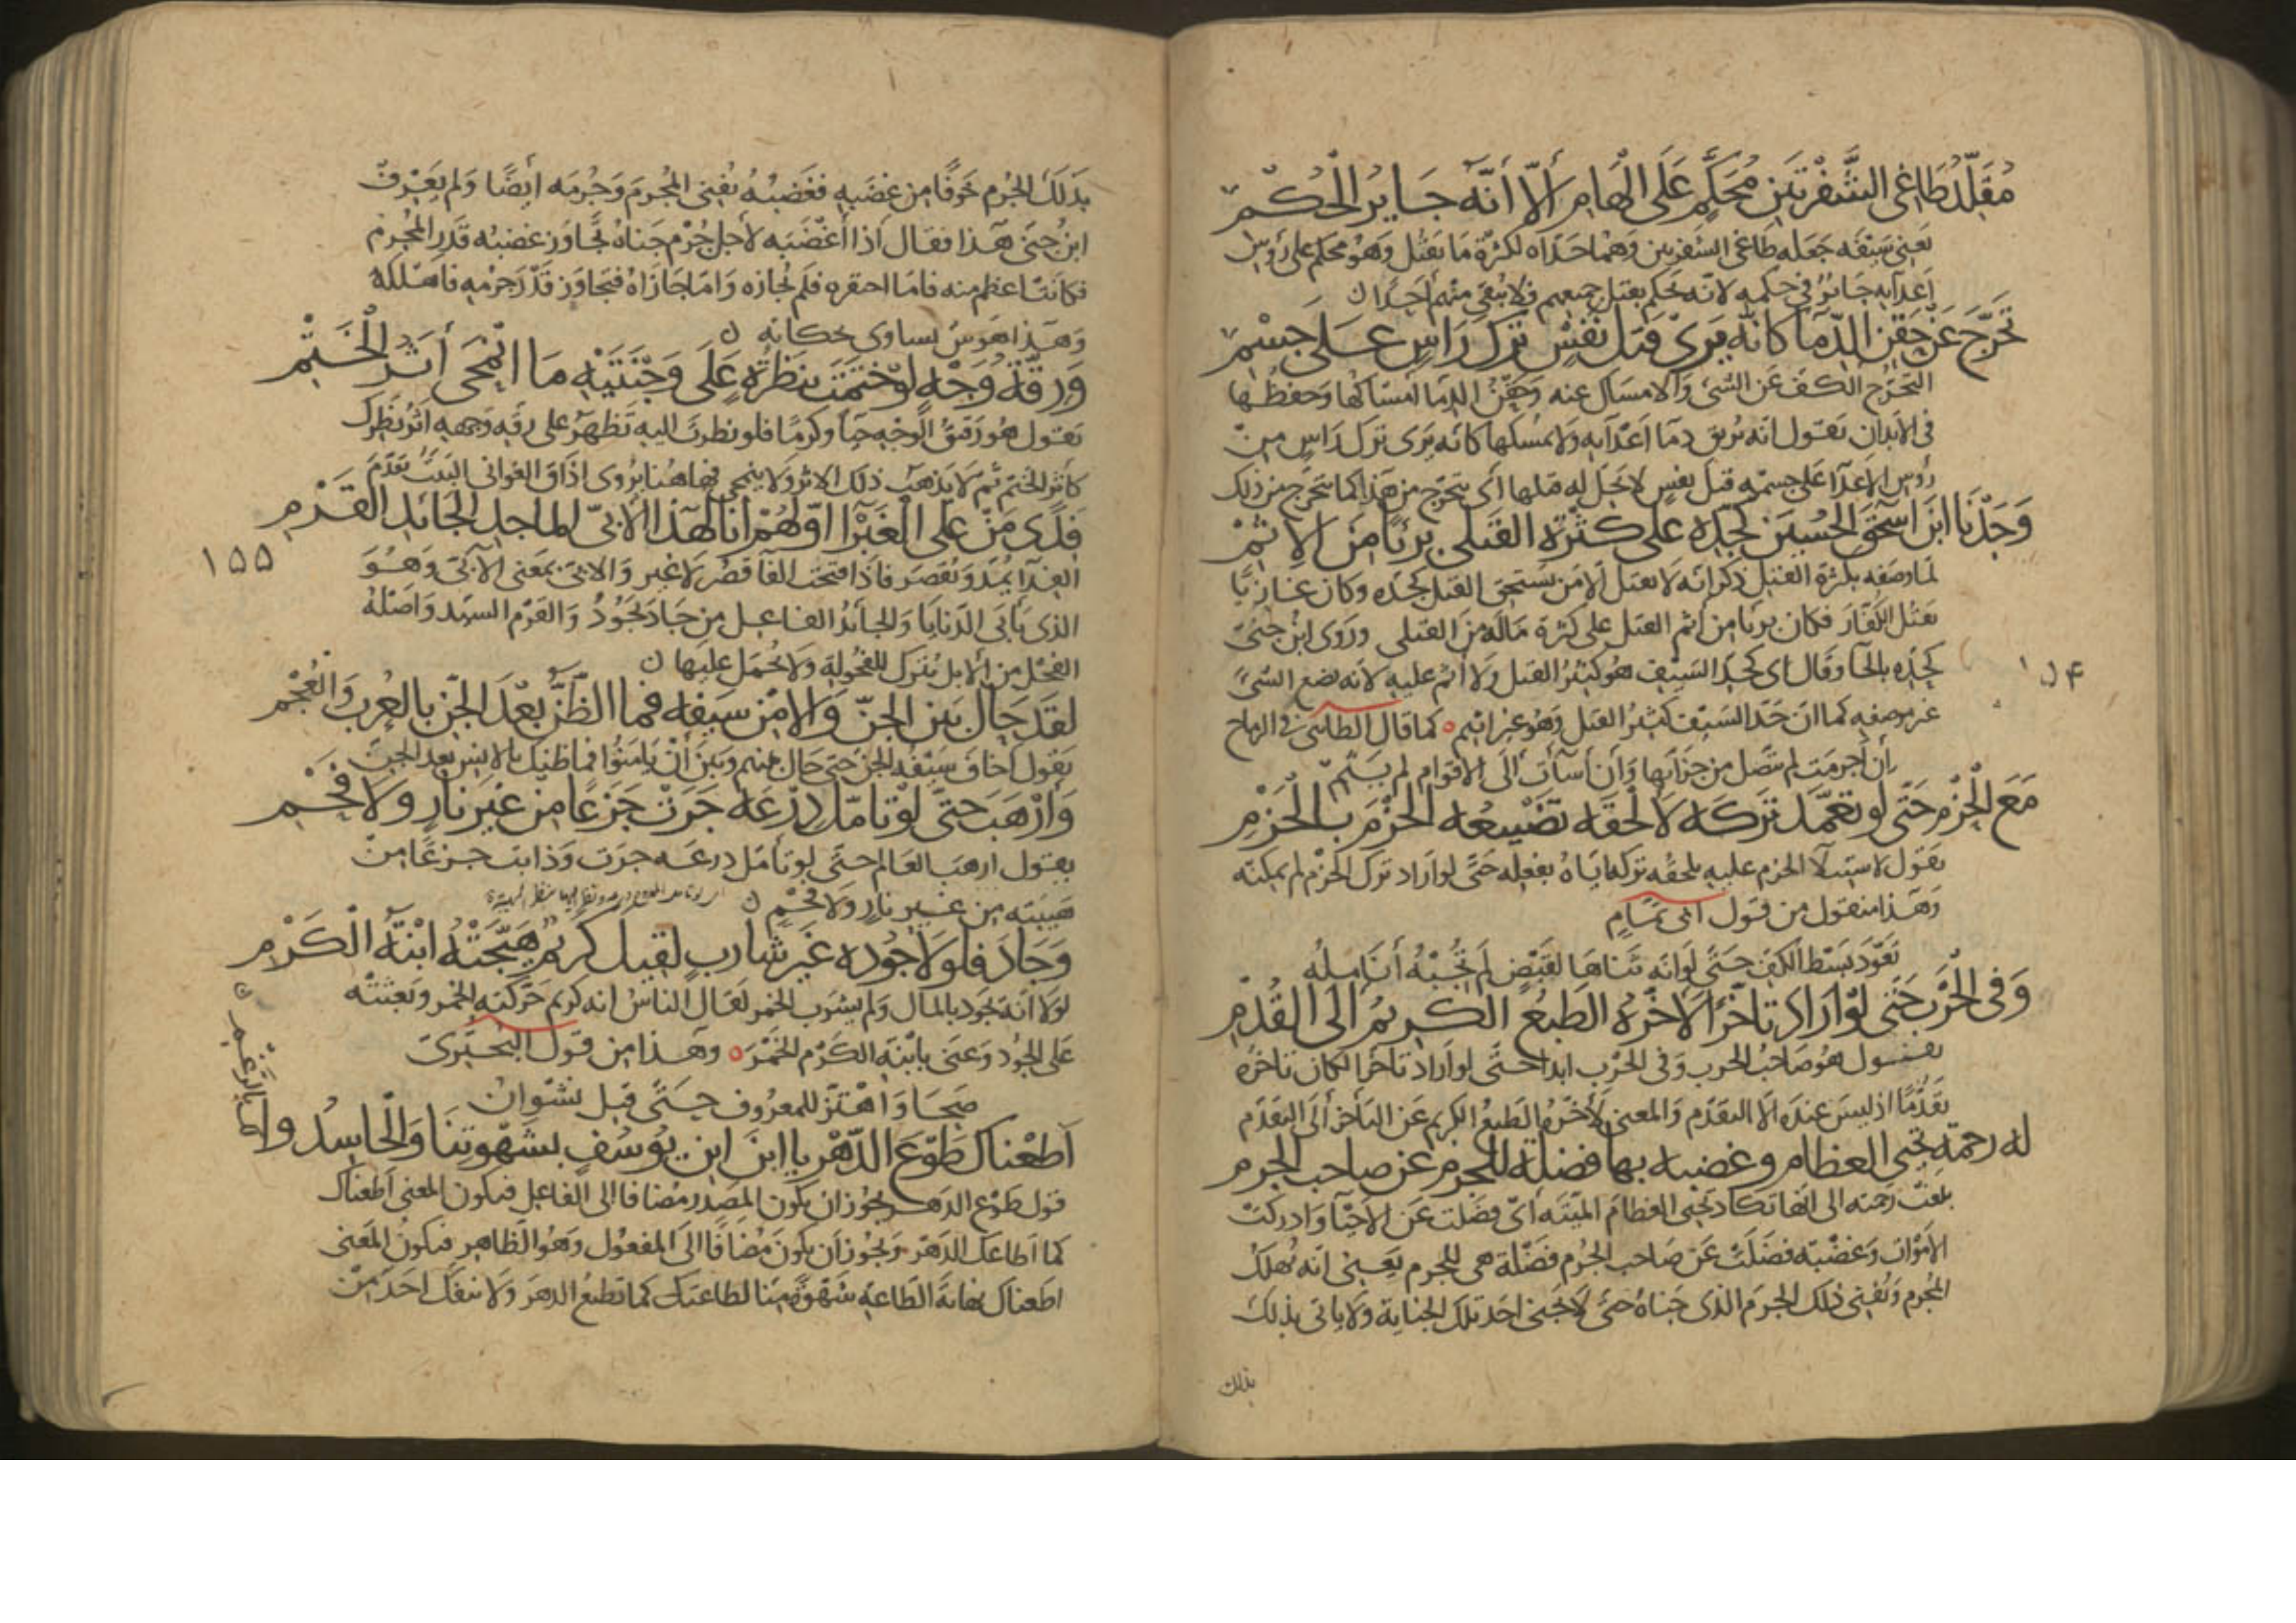 مُقَلِّدُ طَاغِي الشَّفْرَتَيْنِ مُحَكَّمٍ عَلَى الْهَامِ اَلَّا أَنَّهُ جَايِرُ الْحُكْمِ
يعني سيفه جعله طاغي الشفرتين وهما حداه لكثرة ما يقتل وهو محكم على رؤس
اعدآيه جائر في حكمه لانه يحكم بقتل جميعهم فلا يبقى منهم احدا
تَحَرَّجَ عَنْ حَقْنِ الدِّمَا كَانَّهُ يَرَى قَتْلَ نَفْسٍ تَرْكَ رَاسٍ عَلَى جِسْمِ
التحرج الكف عن الشئ والامساك عنه وحقن الدما امساكها وحفظها
في الابدان يقول انه يريق دما اعدآيه ولا يمسكها كانه يرى ترك راس من
رؤس الاعدآ على جسمه قتل نفس لا يحل له قتلها أى يتحرج من هذا كما يتحرج من ذلك
وَجَدْنَا ابْنَ اسْحَقَ الْحُسَيْنَ كَجَدِّهِ عَلَى كَثْرَةِ الْقَتْلَى بَرِيًّا مِنَ الْاِثْمِ
لما وصفه بكثرة القتل ذكر انه لا يقتل الا من يستحق القتل كجده وكان غازيا
يقتل الكفار فكان بريا من اثم القتل على كثرة ماله من القتلى وروى ابن جنى
كحده بالحآ وقال اى كحد السيف هو كثير القتل ولا اثم عليه لانه يضع الشئ
غير موضعه كما ان حد السيف كثير القتل وهو غير اثيم كما قال الطائى في الرماح
ان أجرمت لم تنصل من جرايمها وان أسآت الى الاقوام لم تلم
مَعَ الْحَزْمِ حَتَّى لَوْ تَعَمَّدَ تَرْكَهُ لَأَلْحَقَهُ تَضْيِيعُهُ الْحَزْمَ بِالْحَزْمِ
يقول لاستيلآ الحزم عليه يلحقه تركه اياه بفعله حتى لو اراد ترك الحزم لم يمكنه
وهذا منقول من قول ابى تمام
تعود بسط الكف حتى لو انه ثناها لقبض لم تجبه أنامله
وَفِي الْحَرْبِ حَتَّى لَوْ أَرَادَ تَأَخُّرًا لَأَخَّرَهُ الطَّبْعُ الْكَرِيمُ اِلَى الْقُدْمِ
يقول هو صاحب الحرب وفي الحرب ابدا حتى لو أراد تأخرا لكان تاخره
تقدما اذ ليس عنده الا التقدم والمعنى لأخره الطبع الكريم عن التأخر الى التقدم
له رحمة تحيى العظام وغضبه بها فضلة للجرم عن صاحب الجرم
بلغت رحمته الى انها تكاد تحيى العظام الميتة أى فضلت عن الاحيآ وادركت
الاموات وغضبه فضلت عن صاحب الجرم فضلة هى للجرم يعنى انه يهلك
المجرم ويفنى ذلك الجرم الذى جناه حتى لا يجنى احد تلك الجناية ولا ياتى بذلك
بذلك
١٥٤
بذلك الجرم خوفا من غضبه فغضبه يفنى المجرم وجرمه أيضا ولم يعرف
ابن جنى هذا فقال اذا أغضبه لاجل جرم جناه تجاوز غضبه قدر المجرم
فكانت اعظم منه فاما احتقره فلم يجازه واما جازاه فتجاوز قدر جرمه فاهلكه
وهذا هوس يساوى حكاته
وَرِقَّةُ وَجْهٍ لَوْ خَتَمْتَ بِنَظْرَةٍ عَلَى وَجْنَتَيْهِ مَا انْمَحَى أَثَرُ الْخَتْمِ
يقول هو رقيق الوجه حيآ وكرما فلو نظرت اليه تظهر على رقة وجهه اثر نظرك
كأثر الختم ثم لا يذهب ذلك الاثر ولا ينمحى اذاق الغوانى البيت تقدم
فِدًى مَنْ عَلَى الْغَبْرَا اوَّلُهُمْ أَنَا لِهَذَا الْأَبِيِّ الْمَاجِدِ الْجَائِدِ الْقَرْمِ
الفدآ يمد ويقصر فاذا فتحت الفآ قصر لا غير والابى بمعنى الآبى وهو
الذى يأبى الدنايا والجائد الفاعل من جاد يجود والقرم السيد واصله
الفحل من الابل يترك للفحولة ولا يحمل عليها
لَقَدْ حَالَ بَيْنَ الْجِنِّ وَالْاِمْنِ سَيْفُهُ فَمَا الظَّنُّ بَعْدَ الْجِنِّ بِالْعُرْبِ وَالْعُجْمِ
يقول اخاف سيفه الجن حتى حال بينهم وبين أن يامنوا فما ظنك بالانس بعد الجن
وَأَرْهَبَ حَتَّى لَوْ تَأَمَّلَ دِرْعَهُ جَرَتْ جَزَعًا مِنْ غَيْرِ نَارٍ وَلَا فَحْمِ
يقول ارهب العالم حتى لو تأمل درعه جرت وذابت جزعا من
هيبته من غير نار ولا فحم
وَجَادَ فَلَوْلَا جُودُهُ غَيْرَ شَارِبٍ لَقِيلَ كَرِيمٌ هَيَّجَتْهُ ابْنَةُ الْكَرْمِ
لولا انه يجود بالمال ولم يشرب الخمر لقال الناس انه كريم حركته الخمر وبعثته
على الجود وعنى بابنة الكرم الخمر وهذا من قول البحترى
صحا واهتز للمعروف حتى قيل نشوان
أَطَعْنَاكَ طَوْعَ الدَّهْرِ يَا ابْنَ ابْنِ يُوسُفٍ بِشَهْوَتِنَا وَالْحَاسِدُوا
لك بالرغم
قول طوع الدهر يجوز ان يكون المصدر مضافا الى الفاعل فيكون المعنى اطعناك
كما اطاعك الدهر ويجوز أن يكون مضافا الى المفعول وهو الظاهر فيكون المعنى
اطعناك نهاية الطاعة شهوة منا لطاعتك كما نطيع الدهر ولا ينفك احد من
١٥٥